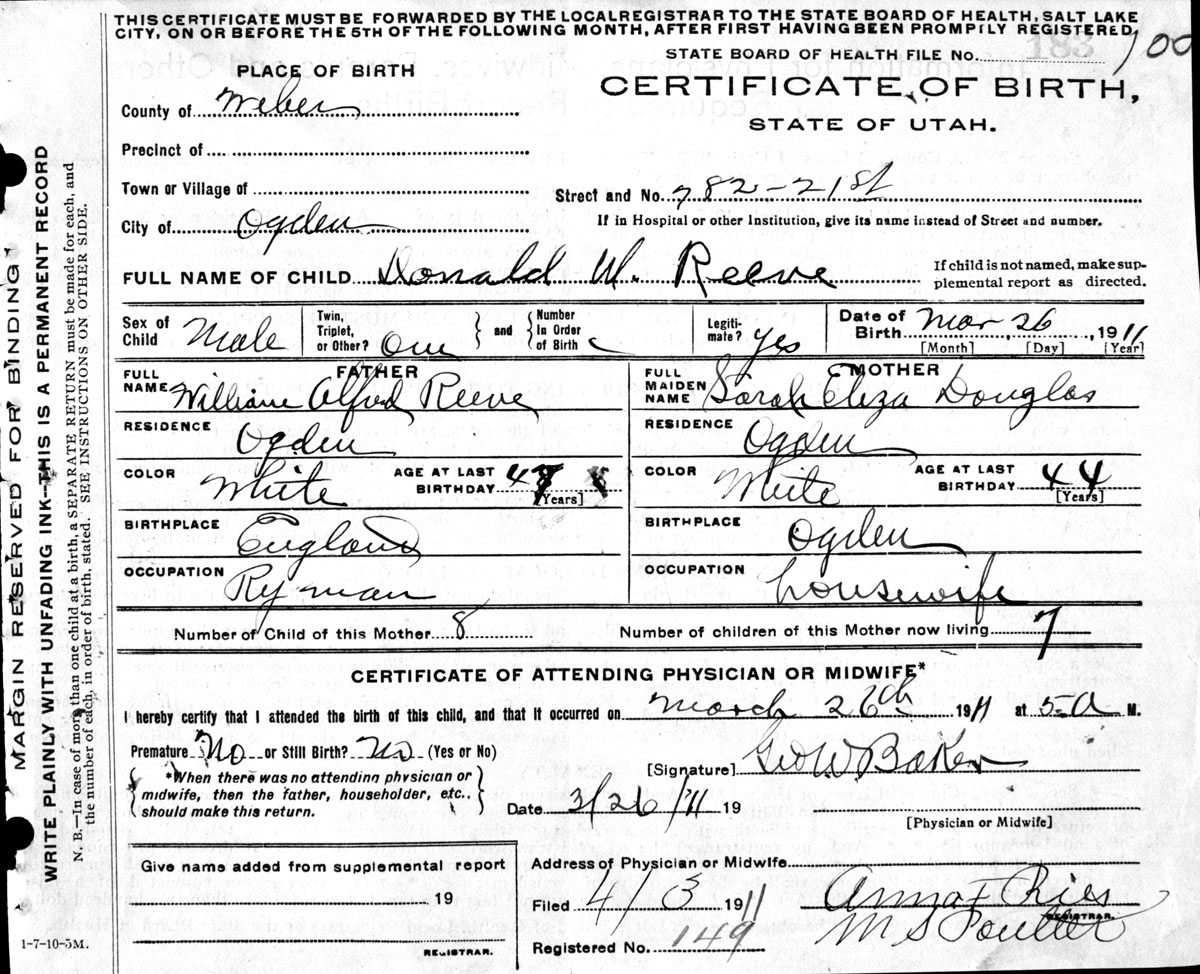 THIS CERTIFICATE MUST BE FORWARDED BY THE LOCAL REGISTRAR TO THE STATE BOARD OF HEALTH, SALT LAKE
CITY, ON OR BEFORE THE 5TH OF THE FOLLOWING MONTH, AFTER FIRST HAVING BEEN PROMPILY REGISTERED
STATE BOARD OF HEALTH FILE No. 183 100
PLACE OF BIRTH
CERTIFICATE OF BIRTH,
STATE OF UTAH.
County of Weber
Precinct of
Town or Village of
Street and No. 782-21st
City of Ogden
If in Hospital or other Institution, give its name instead of Street and number.
FULL NAME OF CHILD Donald W. Reeve
If child is not named, make sup-
plemental report as directed.
Sex of Child Male
Twin, Triplet, or Other? One
and Number In Order of Birth
Legiti-mate? yes
Date of Birth Mar 26, 1911
[Month] [Day] [Year]
FATHER
FULL NAME William Alfred Reeve
RESIDENCE Ogden
COLOR White
AGE AT LAST BIRTHDAY 47 [Years]
BIRTHPLACE England
OCCUPATION Ry man
MOTHER
FULL MAIDEN NAME Sarah Eliza Douglas
RESIDENCE Ogden
COLOR White
AGE AT LAST BIRTHDAY 44 [Years]
BIRTHPLACE Ogden
OCCUPATION housewife
Number of Child of this Mother 8
Number of children of this Mother now living 7
CERTIFICATE OF ATTENDING PHYSICIAN OR MIDWIFE*
I hereby certify that I attended the birth of this child, and that it occurred on March 26th 1911 at 5-a M.
Premature No or Still Birth? No (Yes or No)
*When there was no attending physician or
midwife, then the father, householder, etc.,
should make this return.
[Signature] Geo W Baker
Date 3/26/11 19
[Physician or Midwife]
Give name added from supplemental report
19
REGISTRAR.
Address of Physician or Midwife
Filed 4/3 1911
Anna F Ries
M S Poulter
REGISTRAR.
Registered No. 149
1-7-10-5M.
MARGIN RESERVED FOR BINDING
WRITE PLAINLY WITH UNFADING INK—THIS IS A PERMANENT RECORD
N. B.—In case of more than one child at a birth, a SEPARATE RETURN must be made for each, and
the number of each, in order of birth, stated. SEE INSTRUCTIONS ON OTHER SIDE.